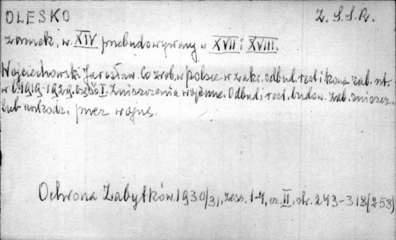 OLESKO Z.S.S.R.
zamek, w. XIV przebudowywany w XVII i XVIII.
Wojciechowski Jarosław. Co zrob. w Polsce w zakr. odbud. rest i kons. zab. szt.
w l. 1919-1929. część I. Zniszczenia wojenne. Odbud. i rest. budow. zab. zniszcz.
lub uszkodz. przez wojnę.
Ochrona Zabytków. 1930/31, zesz. 1-4, cz. II, str. 243-318 (253)